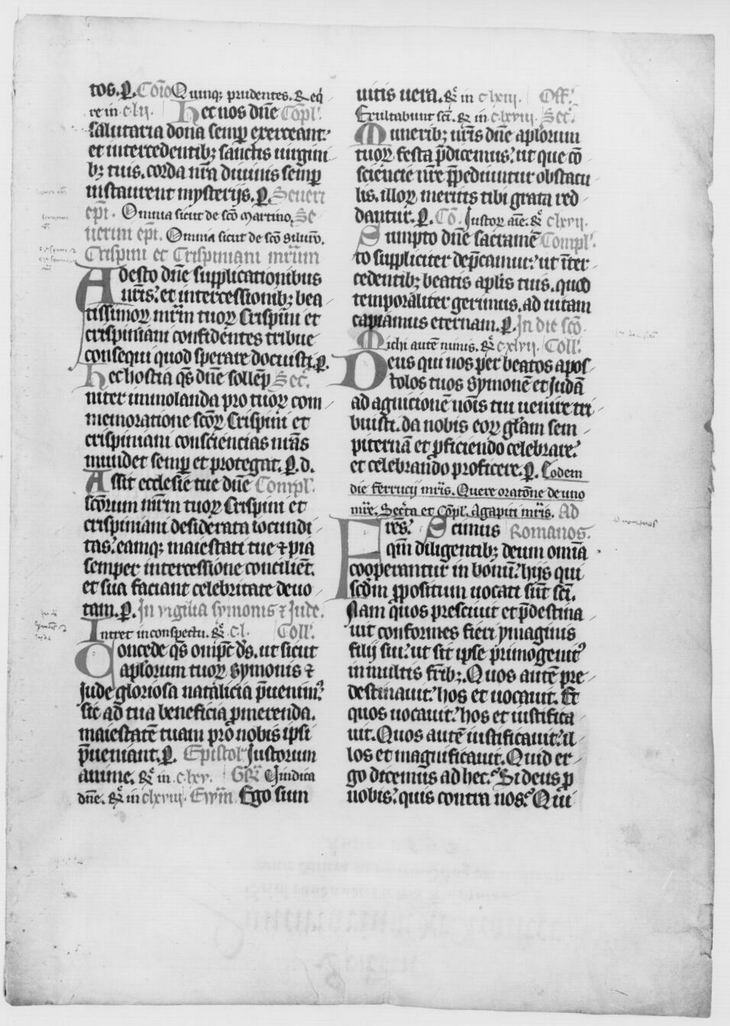 tos. P. Coīo Quinqꝫ prudentes. Req̄
re in c lii. Hec nos dn̄e Cōpl'.
salutaria dona semp exerceant:
et intercedentibꝫ sanctis virgini
bꝫ tuis, corda nr̄a diuinis semp
instaurent mysterijs. P. Seueri
ep̄i. Omnia sicut de sc̄o Martino. Se
uerini ep̄i. Omnia sicut de sc̄o Siluīo.
Crispini et Crispiniani mr̄um
Adesto dn̄e supplicationibus
nr̄is: et intercessionibꝫ bea
tissimoꝝ mr̄m tuoꝝ Crispini et
crispiniani confidentes tribue
consequi quod sperare docuisti. P.
Hec hostia q̄s dn̄e sollēp Sec̄.
niter immolanda pro tuoꝝ com
memoratione sc̄oꝝ Crispini et
crispiniani consciencias nr̄as
mundet semp et protegat. P. d.
Assit ecclesie tue dn̄e Compl'.
sc̄orum mr̄m tuoꝝ Crispini et
crispiniani desiderata iocundi
tas: eamqꝫ maiestati tue ꝓpia
semper intercessione conciliēt.
et sua faciant celebritate deuo
tam. P. In vigilia Symonis ⁊ Jude.
Intret in conspectu. R̄ c l. Coll'.
Concede q̄s omīpc̄ ds̄. ut sicut
aplorum tuoꝝ Symonis ⁊
Jude gloriosa natalicia p̄uenim᾽
sic ad tua beneficia ꝓmerenda.
maiestatē tuam pro nobis ipsi
p̄ueniant. P. Epistol' Justorum
anime. R̄ in c lxv. Gr̄ Vindica
dn̄e. R̄ in c lxviii. Ewm̄ Ego sum
uitis uera. R̄ in c lxiii. Off'.
Exultabunt sc̄i. R̄ in c lxviii. Sec̄.
Muneribꝫ nr̄is dn̄e aplorum
tuoꝝ festa p̄dicemus: ut que cō
sciencie nr̄e p̄pediuntur obstacu
lis. illoꝝ meritis tibi grata red
dantur. P. Cō. Justoꝝ aīe. R̄ c lxvii.
Sumpto dn̄e sacramē Compl'.
to suppliciter dep̄camur: ut īter
cedentibꝫ beatis aplis tuis. quod
temporaliter gerimus. ad uitam
capiamus eternam. P. In die sc̄o
Michi autē nimis. R̄ c xlvii. Coll'.
Deus qui nos per beatos apos
tolos tuos Symonē et Judā
ad agnicionē noīs tui uenire tri
buisti. da nobis eoꝝ glam sem
piternā et ꝓficiendo celebrare:
et celebrando proficere. P. Eodem
die Ferrucij mr̄is. Quere oratōne de uno
mr̄e. Secr̄a et Cōpl'. Agapiti mr̄is. Ad
Fres: Scimus Romanos.
qm̄ diligentibꝫ deum omīa
cooperantur in bonū: hijs qui
scdm ꝓpositum uocati sūt sc̄i.
Nam quos presciuit et p̄destina
uit conformes fieri ymaginis
filij sui: ut sit ipse primogenit᾽
in multis fribꝫ. Quos autē pre
destinauit: hos et uocauit. Et
quos uocauit: hos et iustifica
uit. Quos autē iustificauit: il
los et magnificauit. Quid er
go dicemus ad hec: Si deus p
nobis: quis contra nos: Qui